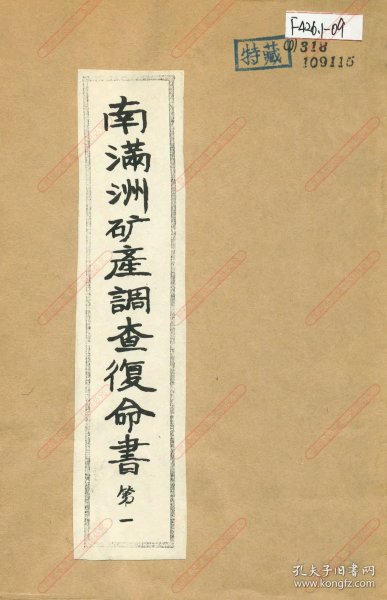 F426.1-09
特藏
(1)318
109115
南滿洲矿產調查復命書 第一
孔夫子旧书网
www.kongfz.com